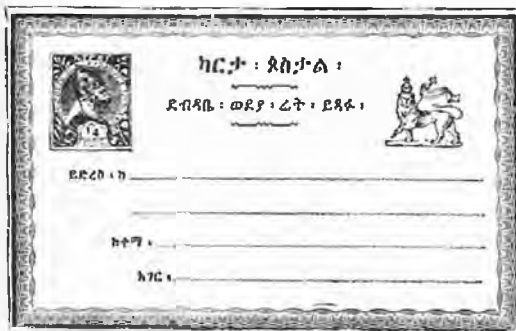 ካርታ ፡ ጶስታል ፡
ደብዳቤ ፡ ወደዖ ፡ ሬት ፡ ይጻፉ ፡
ይድረስ ፡ ከ
ከተማ ፡
አገር ፡